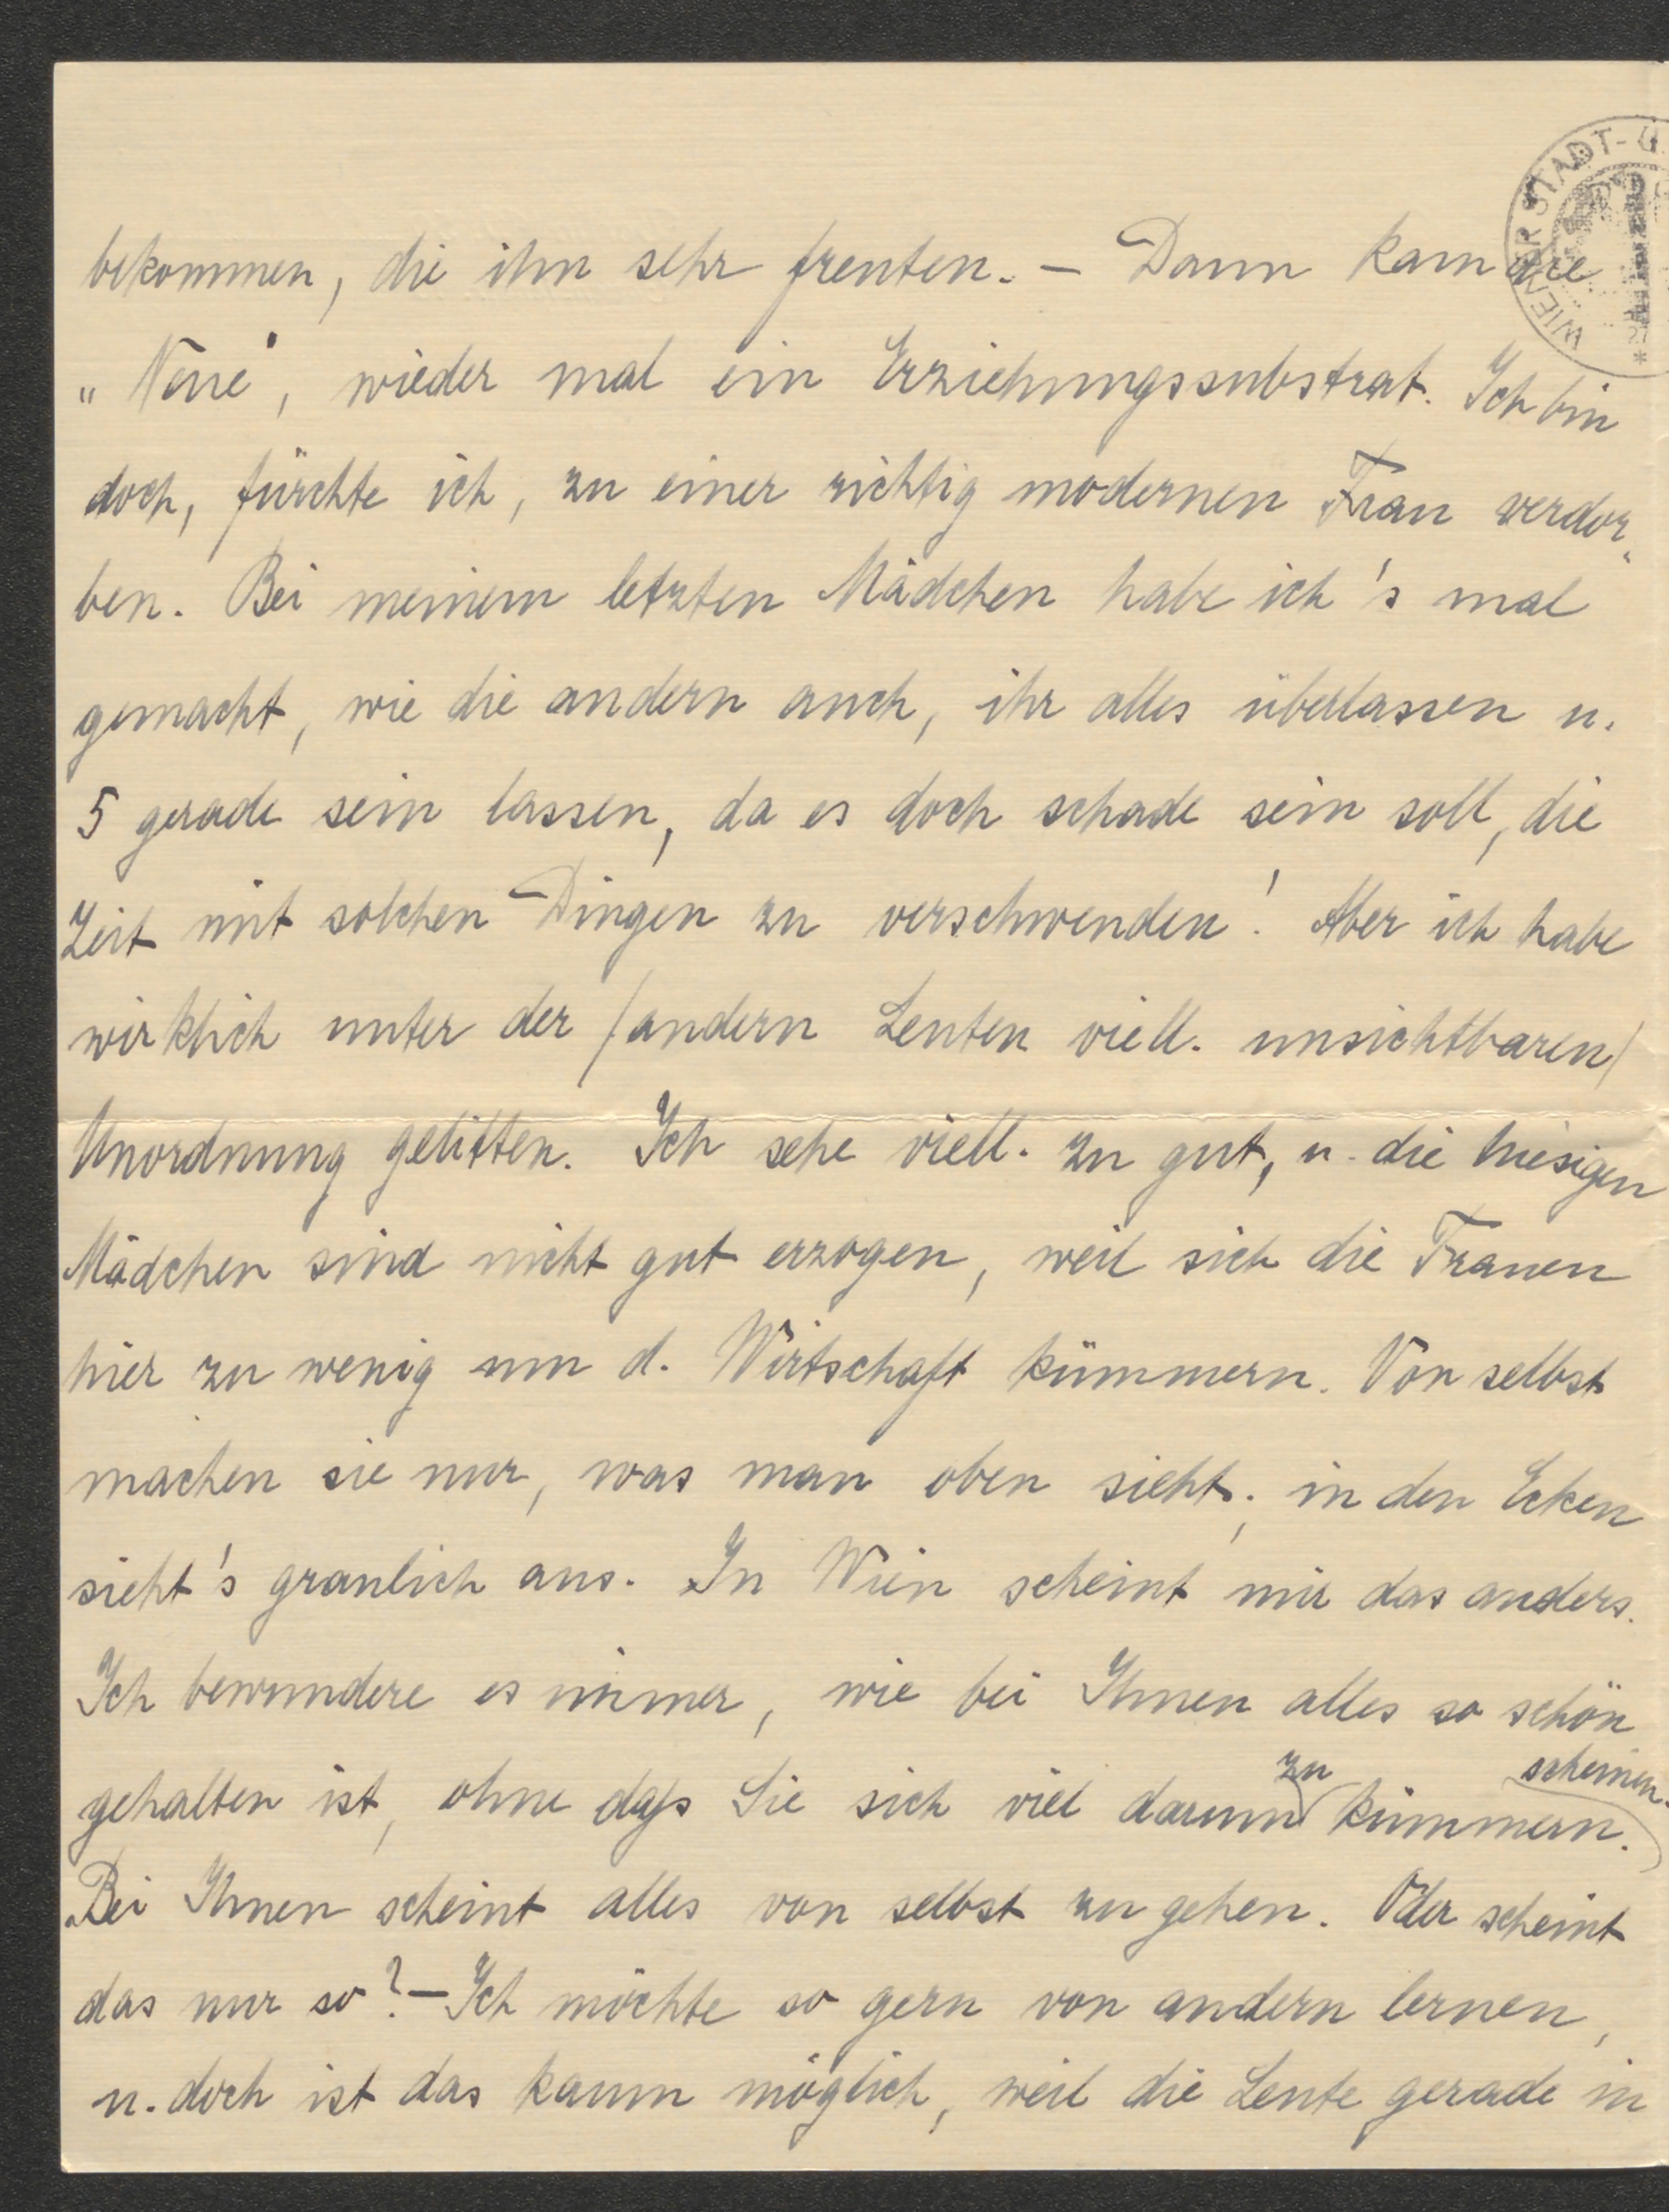 WIENER STADT-U.
bekommen, die ihm sehr freuten. – Dann kam die
„Neue", wieder mal ein Erziehungssubstrat. Ich bin
doch, fürchte ich, zu einer richtig modernen Frau verdor-
ben. Bei meinem letzten Mädchen habe ich's mal
gemacht, wie die andern auch, ihr alles überlassen u.
5 gerade sein lassen, da es doch schade sein soll, die
Zeit mit solchen Dingen zu verschwenden! Aber ich habe
wirklich unter der /andern Leuten viell. unsichtbaren/
Unordnung gelitten. Ich sehe viell. zu gut, u. die hiesigen
Mädchen sind nicht gut erzogen, weil sich die Frauen
hier zu wenig um d. Wirtschaft kümmern. Von selbst
machen sie nur, was man oben sieht; in den Ecken
sieht's graulich aus. In Wien scheint mir das anders.
Ich bewundere es immer, wie bei Ihnen alles so schön
gehalten ist, ohne dass Sie sich viel darum zu kümmern scheinen.
Bei Ihnen scheint alles von selbst zu gehen. Oder scheint
das nur so? – Ich möchte so gern von andern lernen,
u. doch ist das kaum möglich, weil die Leute gerade in